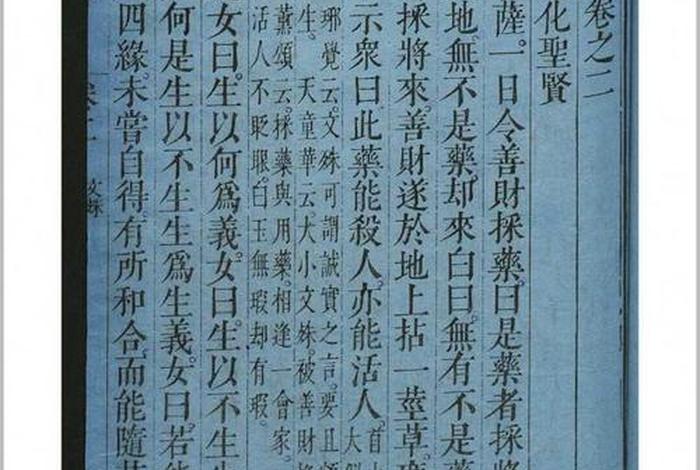 卷之二
化聖賢
薩。一日令善財採藥。曰是藥者採將
地無不是藥。却來白曰。無有不是藥
採將來。善財遂於地上拈一莖草。
示衆曰。此藥能殺人。亦能活人。
瑯覺云。文殊可謂誠實之言。要且
生。天童華云。大小文殊。被善財
薰頌云。採藥與用藥。相逢一會家。
活人不眨眼。白玉無瑕却有瑕。
女曰。生以何爲義。女曰。生以不生生
何是生以不生生爲生義。女曰。若能
四緣。未嘗自得有所和合。而能隨其
文殊